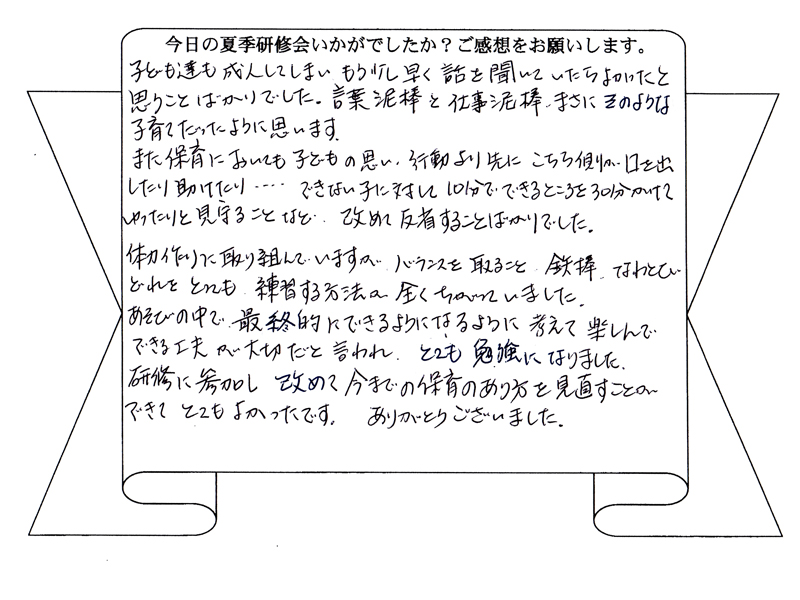 今日の夏季研修会いかがでしたか？ご感想をお願いします。
子ども達も成人してしまい もう少し早く話を聞いていたらよかったと
思うことばかりでした。言葉泥棒と仕事泥棒、まさにそのような
子育てだったように思います。
また保育においても子どもの思い、行動より先にこちら側が口を出
したり助けたり‥‥ できない子に対して10分でできるところを30分かけて
ゆったりと見守ることなど、改めて反省することばかりでした。
体力作りに取り組んでいますが、バランスを取ること、鉄棒、なわとび
どれをとっても、練習する方法が全くちがっていました。
あそびの中で、最終的にできるようになるように考えて楽しんで
できる工夫が大切だと言われ、とても勉強になりました。
研修に参加し 改めて今までの保育のあり方を見直すことが
できてとてもよかったです。 ありがとうございました。